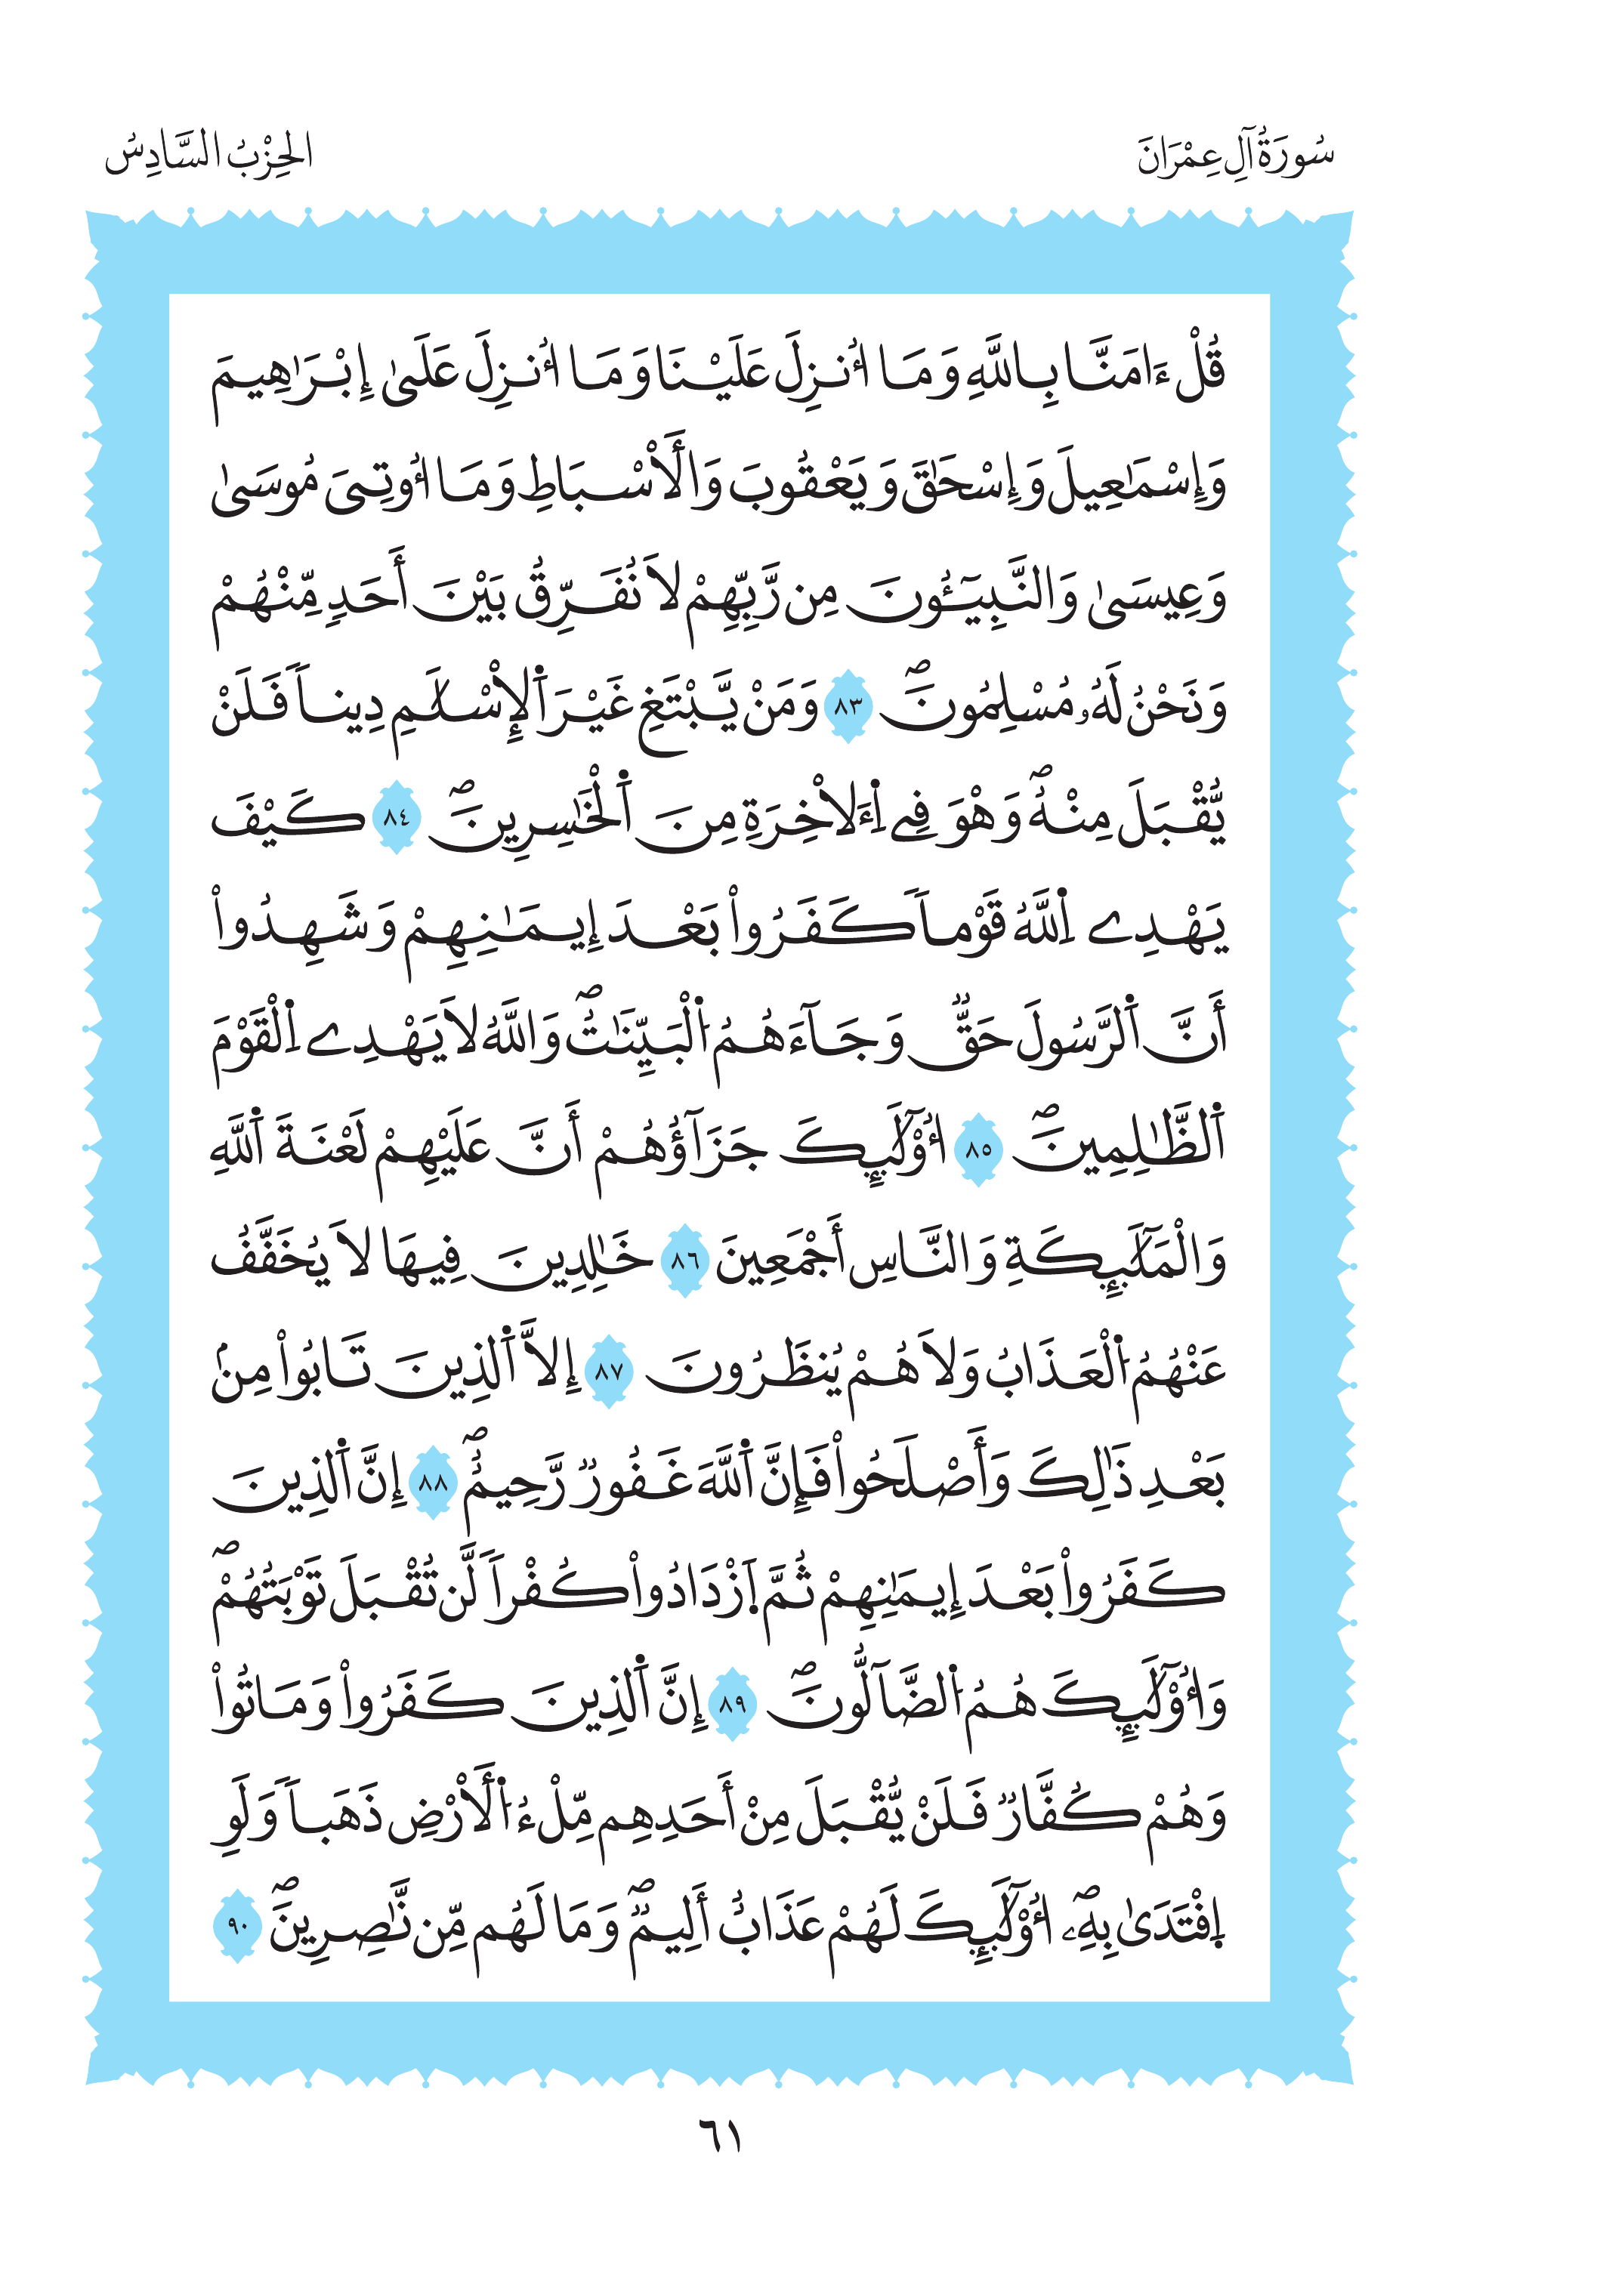 سُورَةُ آلِ عِمْرَانَ
الحِزْبُ السَّادِسُ
قُلْ ءَامَنَّا بِاللَّهِ وَمَا أُنزِلَ عَلَيْنَا وَمَا أُنزِلَ عَلَىٰ إِبْرَٰهِيمَ
وَإِسْمَٰعِيلَ وَإِسْحَٰقَ وَيَعْقُوبَ وَالَأَسْبَاطِ وَمَا أُوتِيَ مُوسَىٰ
وَعِيسَىٰ وَالنَّبِيـُٔونَ مِن رَّبِّهِمْ لَا نُفَرِّقُ بَيْنَ أَحَدٍ مِّنْهُمْ
وَنَحْنُ لَهُۥ مُسْلِمُونَۖ ٨٣ وَمَنْ يَّبْتَغِ غَيْرَ اَ۬لْإِسْلَٰمِ دِيناٗ فَلَنْ
يُّقْبَلَ مِنْهُۖ وَهْوَ فِے اِ۬ءَلَاخِرَةِ مِنَ اَ۬لْخَٰسِرِينَۖ ٨٤ كَيْفَ
يَهْدِے اِ۬للَّهُ قَوْماٗ كَفَرُواْ بَعْدَ إِيمَٰنِهِمْ وَشَهِدُواْ
أَنَّ اَ۬لرَّسُولَ حَقّٞ وَجَآءَهُمُ اُ۬لْبَيِّنَٰتُۖ وَاللَّهُ لَا يَهْدِے اِ۬لْقَوْمَ
اَ۬لظَّٰلِمِينَۖ ٨٥ أُوْلَٰٓئِكَ جَزَآؤُهُمْ أَنَّ عَلَيْهِمْ لَعْنَةَ اَ۬للَّهِ
وَالْمَلَٰٓئِكَةِ وَالنَّاسِ أَجْمَعِينَ ٨٦ خَٰلِدِينَ فِيهَا لَا يُخَفَّفُ
عَنْهُمُ اُ۬لْعَذَابُ وَلَا هُمْ يُنظَرُونَ ٨٧ إِلَّا اَ۬لذِينَ تَابُواْ مِنۢ
بَعْدِ ذَٰلِكَ وَأَصْلَحُواْ فَإِنَّ اَ۬للَّهَ غَفُورٞ رَّحِيمٌۖ ٨٨ إِنَّ اَ۬لذِينَ
كَفَرُواْ بَعْدَ إِيمَٰنِهِمْ ثُمَّ اَ۪زْدَادُواْ كُفْراٗ لَّن تُقْبَلَ تَوْبَتُهُمْۖ
وَأُوْلَٰٓئِكَ هُمُ اُ۬لضَّآلُّونَۖ ٨٩ إِنَّ اَ۬لذِينَ كَفَرُواْ وَمَاتُواْ
وَهُمْ كُفَّارٞ فَلَنْ يُّقْبَلَ مِنْ أَحَدِهِم مِّلْءُ اُ۬لَأَرْضِ ذَهَباٗ وَلَوِ
اِ۪فْتَدَىٰ بِهِۦۖ أُوْلَٰٓئِكَ لَهُمْ عَذَابٌ أَلِيمٞۖ وَمَا لَهُم مِّن نَّٰصِرِينَۖ ٩٠
٦١